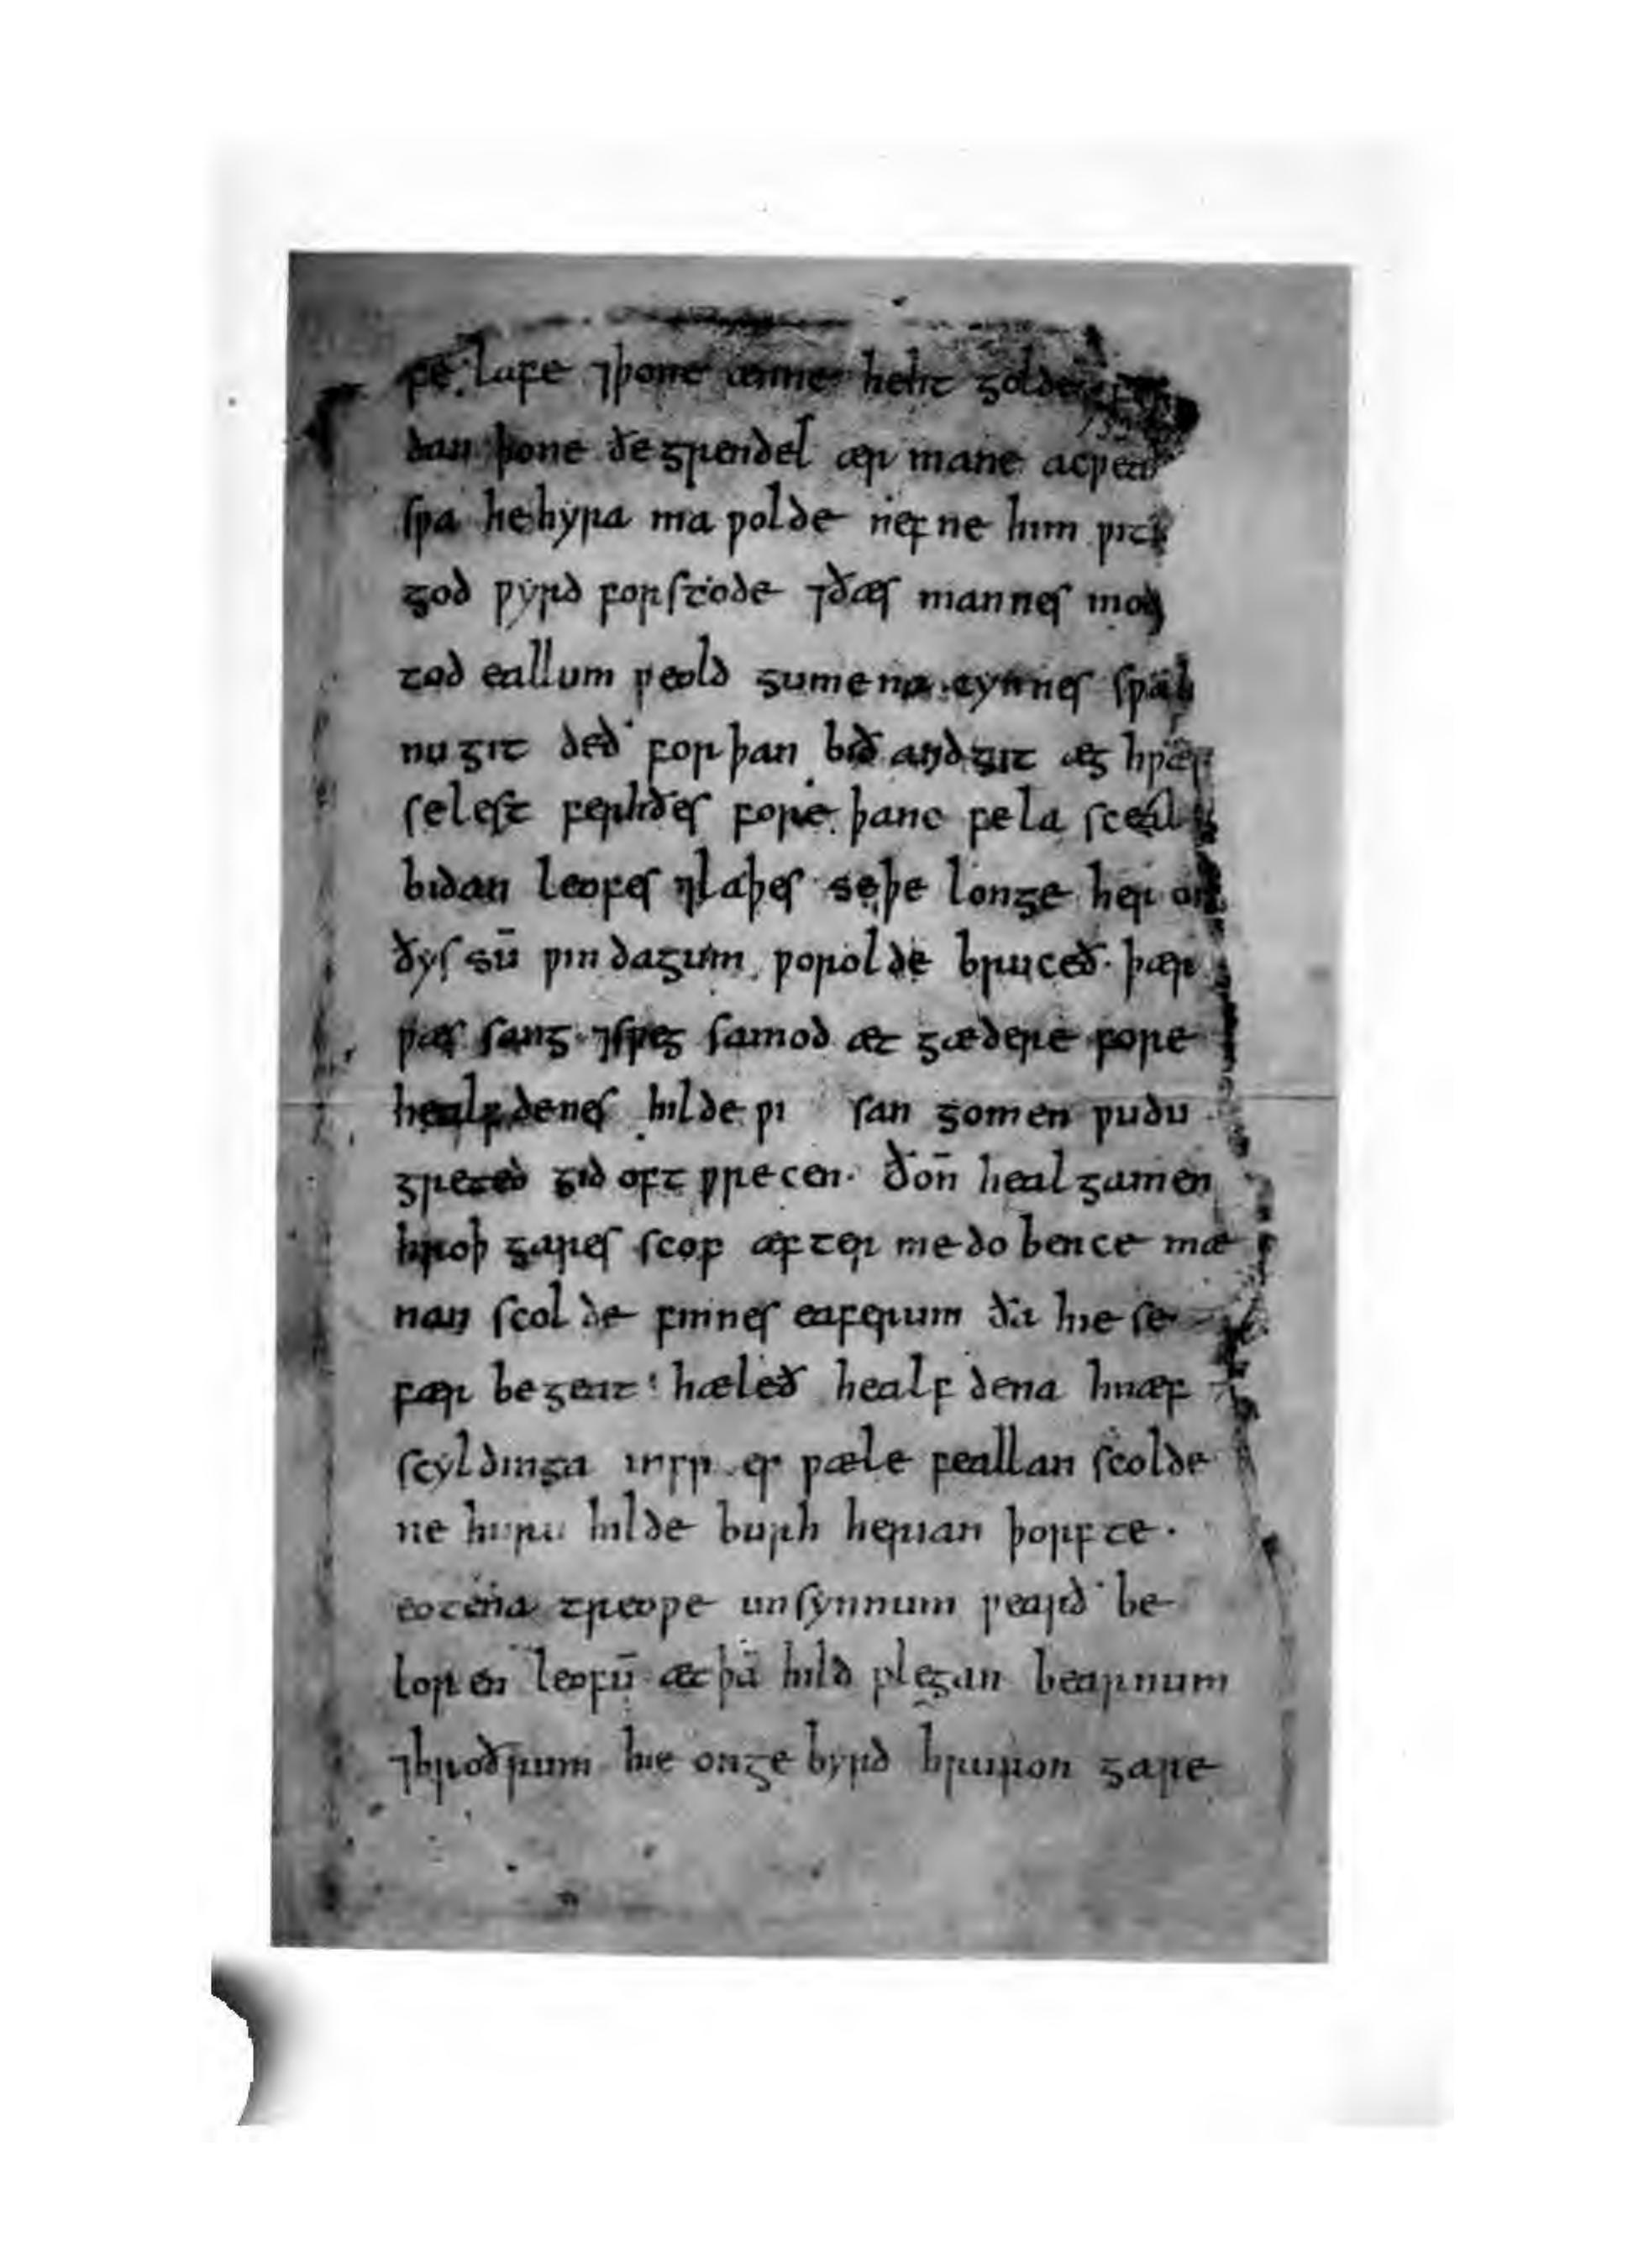 fe lafe ⁊ þone ænne heht golde
dan þone ðe grendel ær mane acwea
swa he hyra ma wolde nefne him wit
god wyrd forstode ⁊ ðæs mannes mod
tod eallum weold gumena cynnes swa h
nu git deð for þan bið andgit æg hwær
selest ferhðes fore þanc fela sceal
bidan leofes ⁊ laþes se þe longe her on
ðyssū win dagum worolde bruceð· þær
wæs sang ⁊ sweg samod æt gædere fore
healfdenes hilde wi san gomen wudu
greted gid oft wrecen· ðoñ heal gamen
hroþ gares scop æfter medo bence mæ
nan scolde finnes eaferum ða hie se
fær begeat· hæleð healf dena hnæf
scyldinga wæle feallan scolde
ne huru hilde burh herian þorfte·
eotena treowe unsynnum wearð be
loren leofū æt þā hild plegan bearnum
⁊ broðrum hie on ge byrd hruron gare